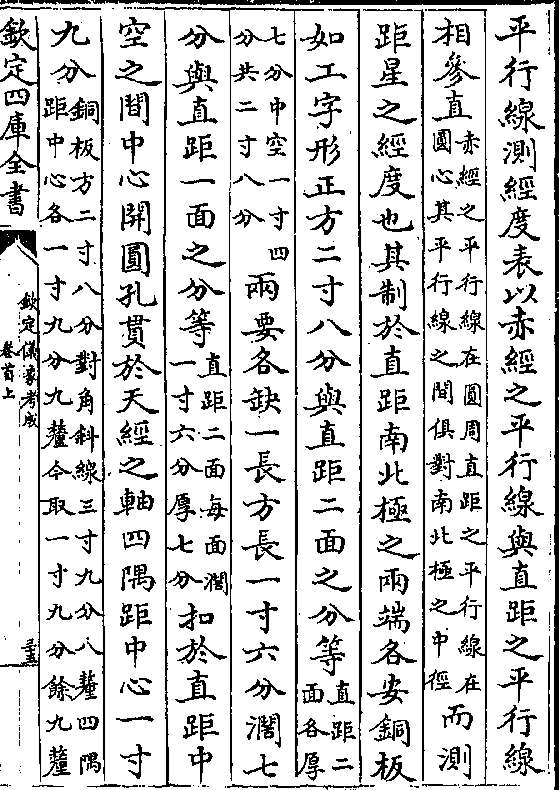 平行線測經度表以赤經之平行線與直距之平行線
相參直赤經之平行線在圓周直距之平行線在圓心其平行線之間俱對南北極之中徑而測
距星之經度也其制於直距南北極之兩端各安銅板
如工字形正方二寸八分與直距二面之分等直距二面各厚
七分中空一寸四分共二寸八分兩要各缺一長方長一寸六分濶七
分與直距一面之分等直距二面每面濶一寸六分厚七分扣於直距中
空之間中心開圓孔貫於天經之軸四隅距中心一寸
九分銅板方二寸八分對角斜線三寸九分八釐四隅距中心各一寸九分九釐今取一寸九分餘九釐
欽定四庫全書
欽定儀象考成
卷首上
三五